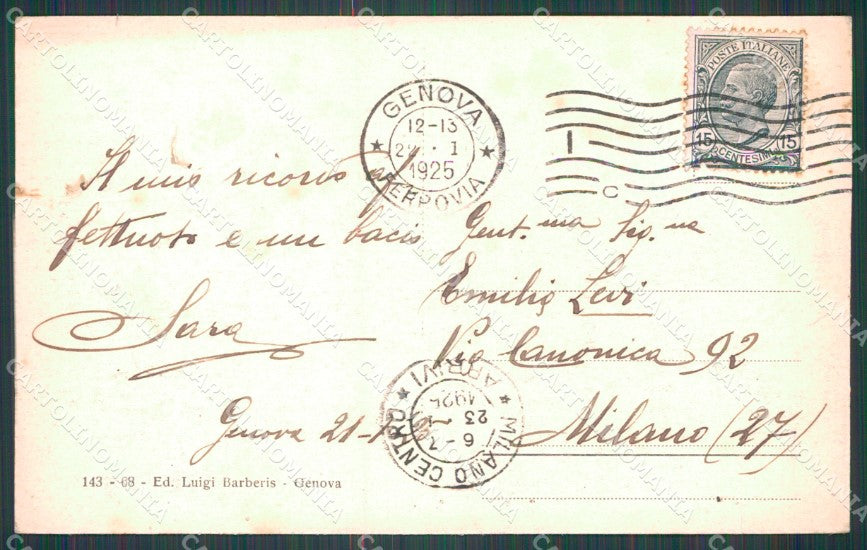 GENOVA
12-13
1925
FERROVIA
POSTE ITALIANE
15 15
CENTESIMI
C
Il mio ricordo
affettuoso e un bacio
Sara
Genova 21-1
Gent.ma Sig.na
Emilia Levi
Via Canonica 92
Milano (27)
ARRIVI
1925
23
6-7
MILANO CENTRO
143 - 68 - Ed. Luigi Barberis - Genova
CARTOLINOMANIA